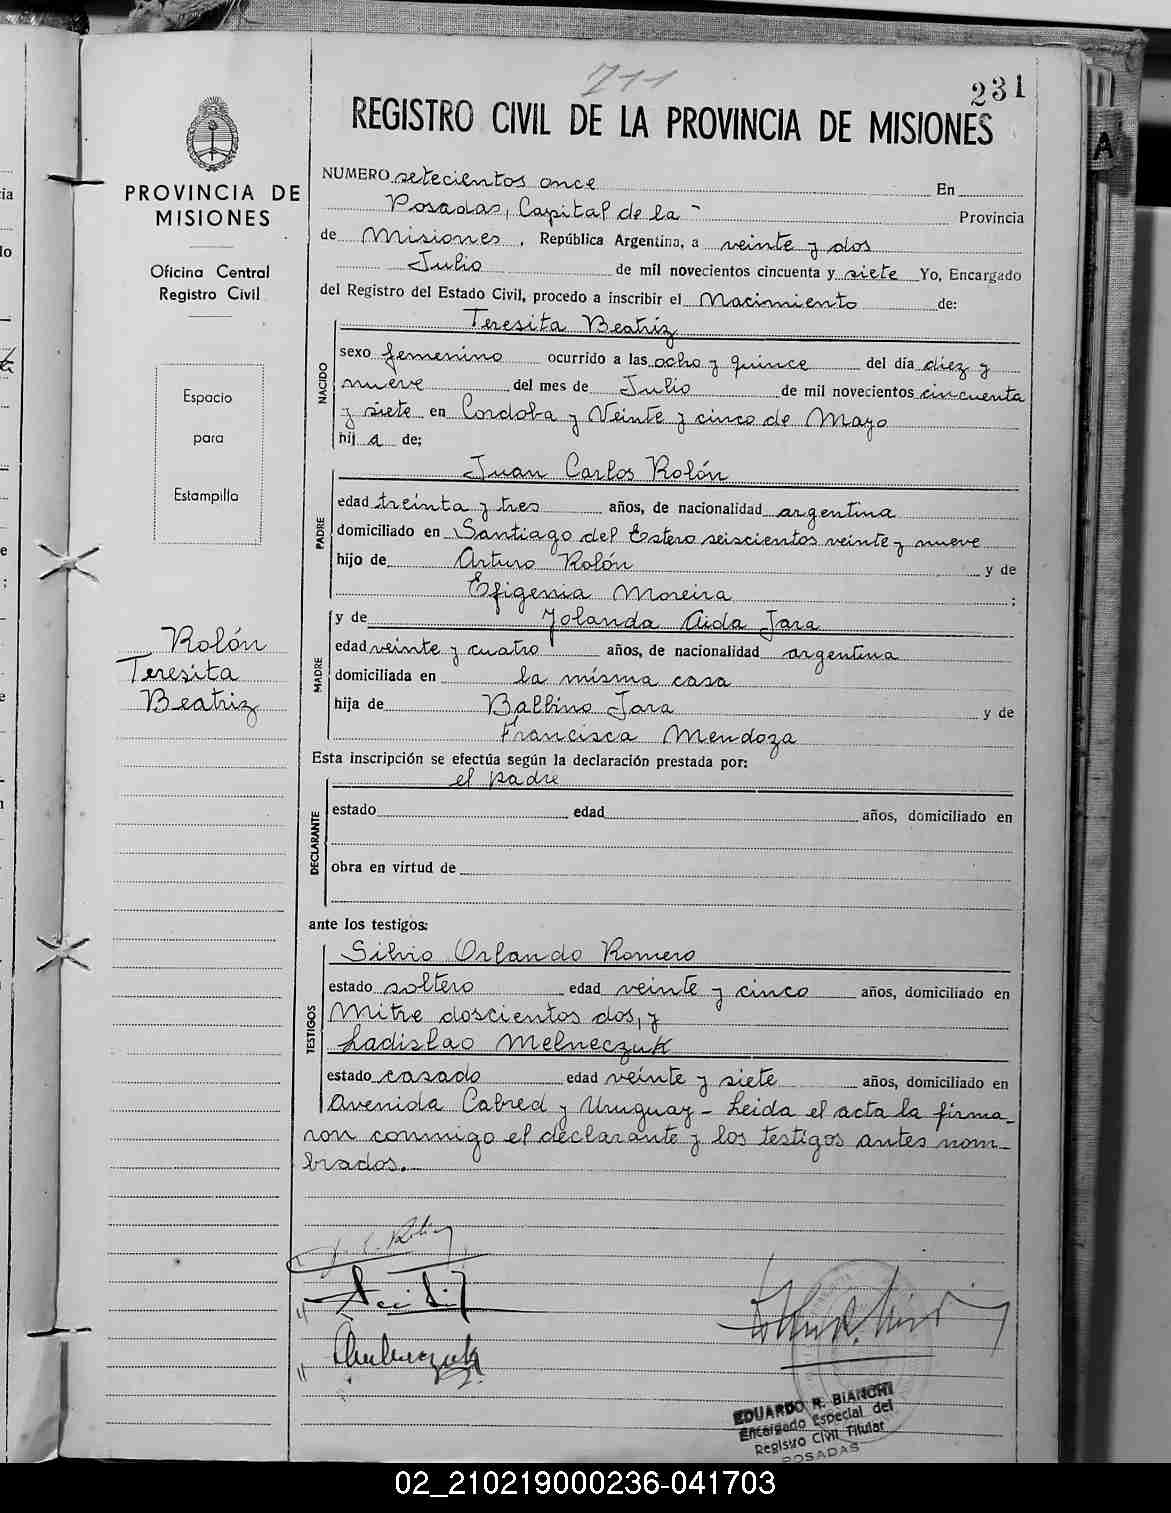 711
231
REGISTRO CIVIL DE LA PROVINCIA DE MISIONES
PROVINCIA DE
MISIONES
Oficina Central
Registro Civil
Espacio
para
Estampilla
Rolón
Teresita
Beatriz
NUMERO setecientos once En
Posadas, Capital de la - Provincia
de Misiones, República Argentina, a veinte y dos
Julio de mil novecientos cincuenta y siete Yo, Encargado
del Registro del Estado Civil, procedo a inscribir el Nacimiento de:
Teresita Beatriz
NACIDO
sexo femenino ocurrido a las ocho y quince del día diez y
nueve del mes de Julio de mil novecientos cincuenta
y siete en Cordoba y Veinte y cinco de Mayo
hij a de:
Juan Carlos Rolón
PADRE
edad treinta y tres años, de nacionalidad argentina
domiciliado en Santiago del Estero seiscientos veinte y nueve
hijo de Arturo Rolón y de
Efigenia Moreira ;
MADRE
y de Yolanda Aida Jara
edad veinte y cuatro años, de nacionalidad argentina
domiciliada en la misma casa
hija de Balbino Jara y de
Francisca Mendoza
Esta inscripción se efectúa según la declaración prestada por:
el padre
DECLARANTE
estado edad años, domiciliado en
obra en virtud de
ante los testigos:
Silvio Orlando Romero
TESTIGOS
estado soltero edad veinte y cinco años, domiciliado en
Mitre doscientos dos, y
Ladislao Melneczuk
estado casado edad veinte y siete años, domiciliado en
Avenida Cabred y Uruguay - Leida el acta la firma-
ron conmigo el declarante y los testigos antes nom-
brados.
EDUARDO R. BIANCHI
Encargado Especial del
Registro Civil Titular
POSADAS
02_210219000236-041703